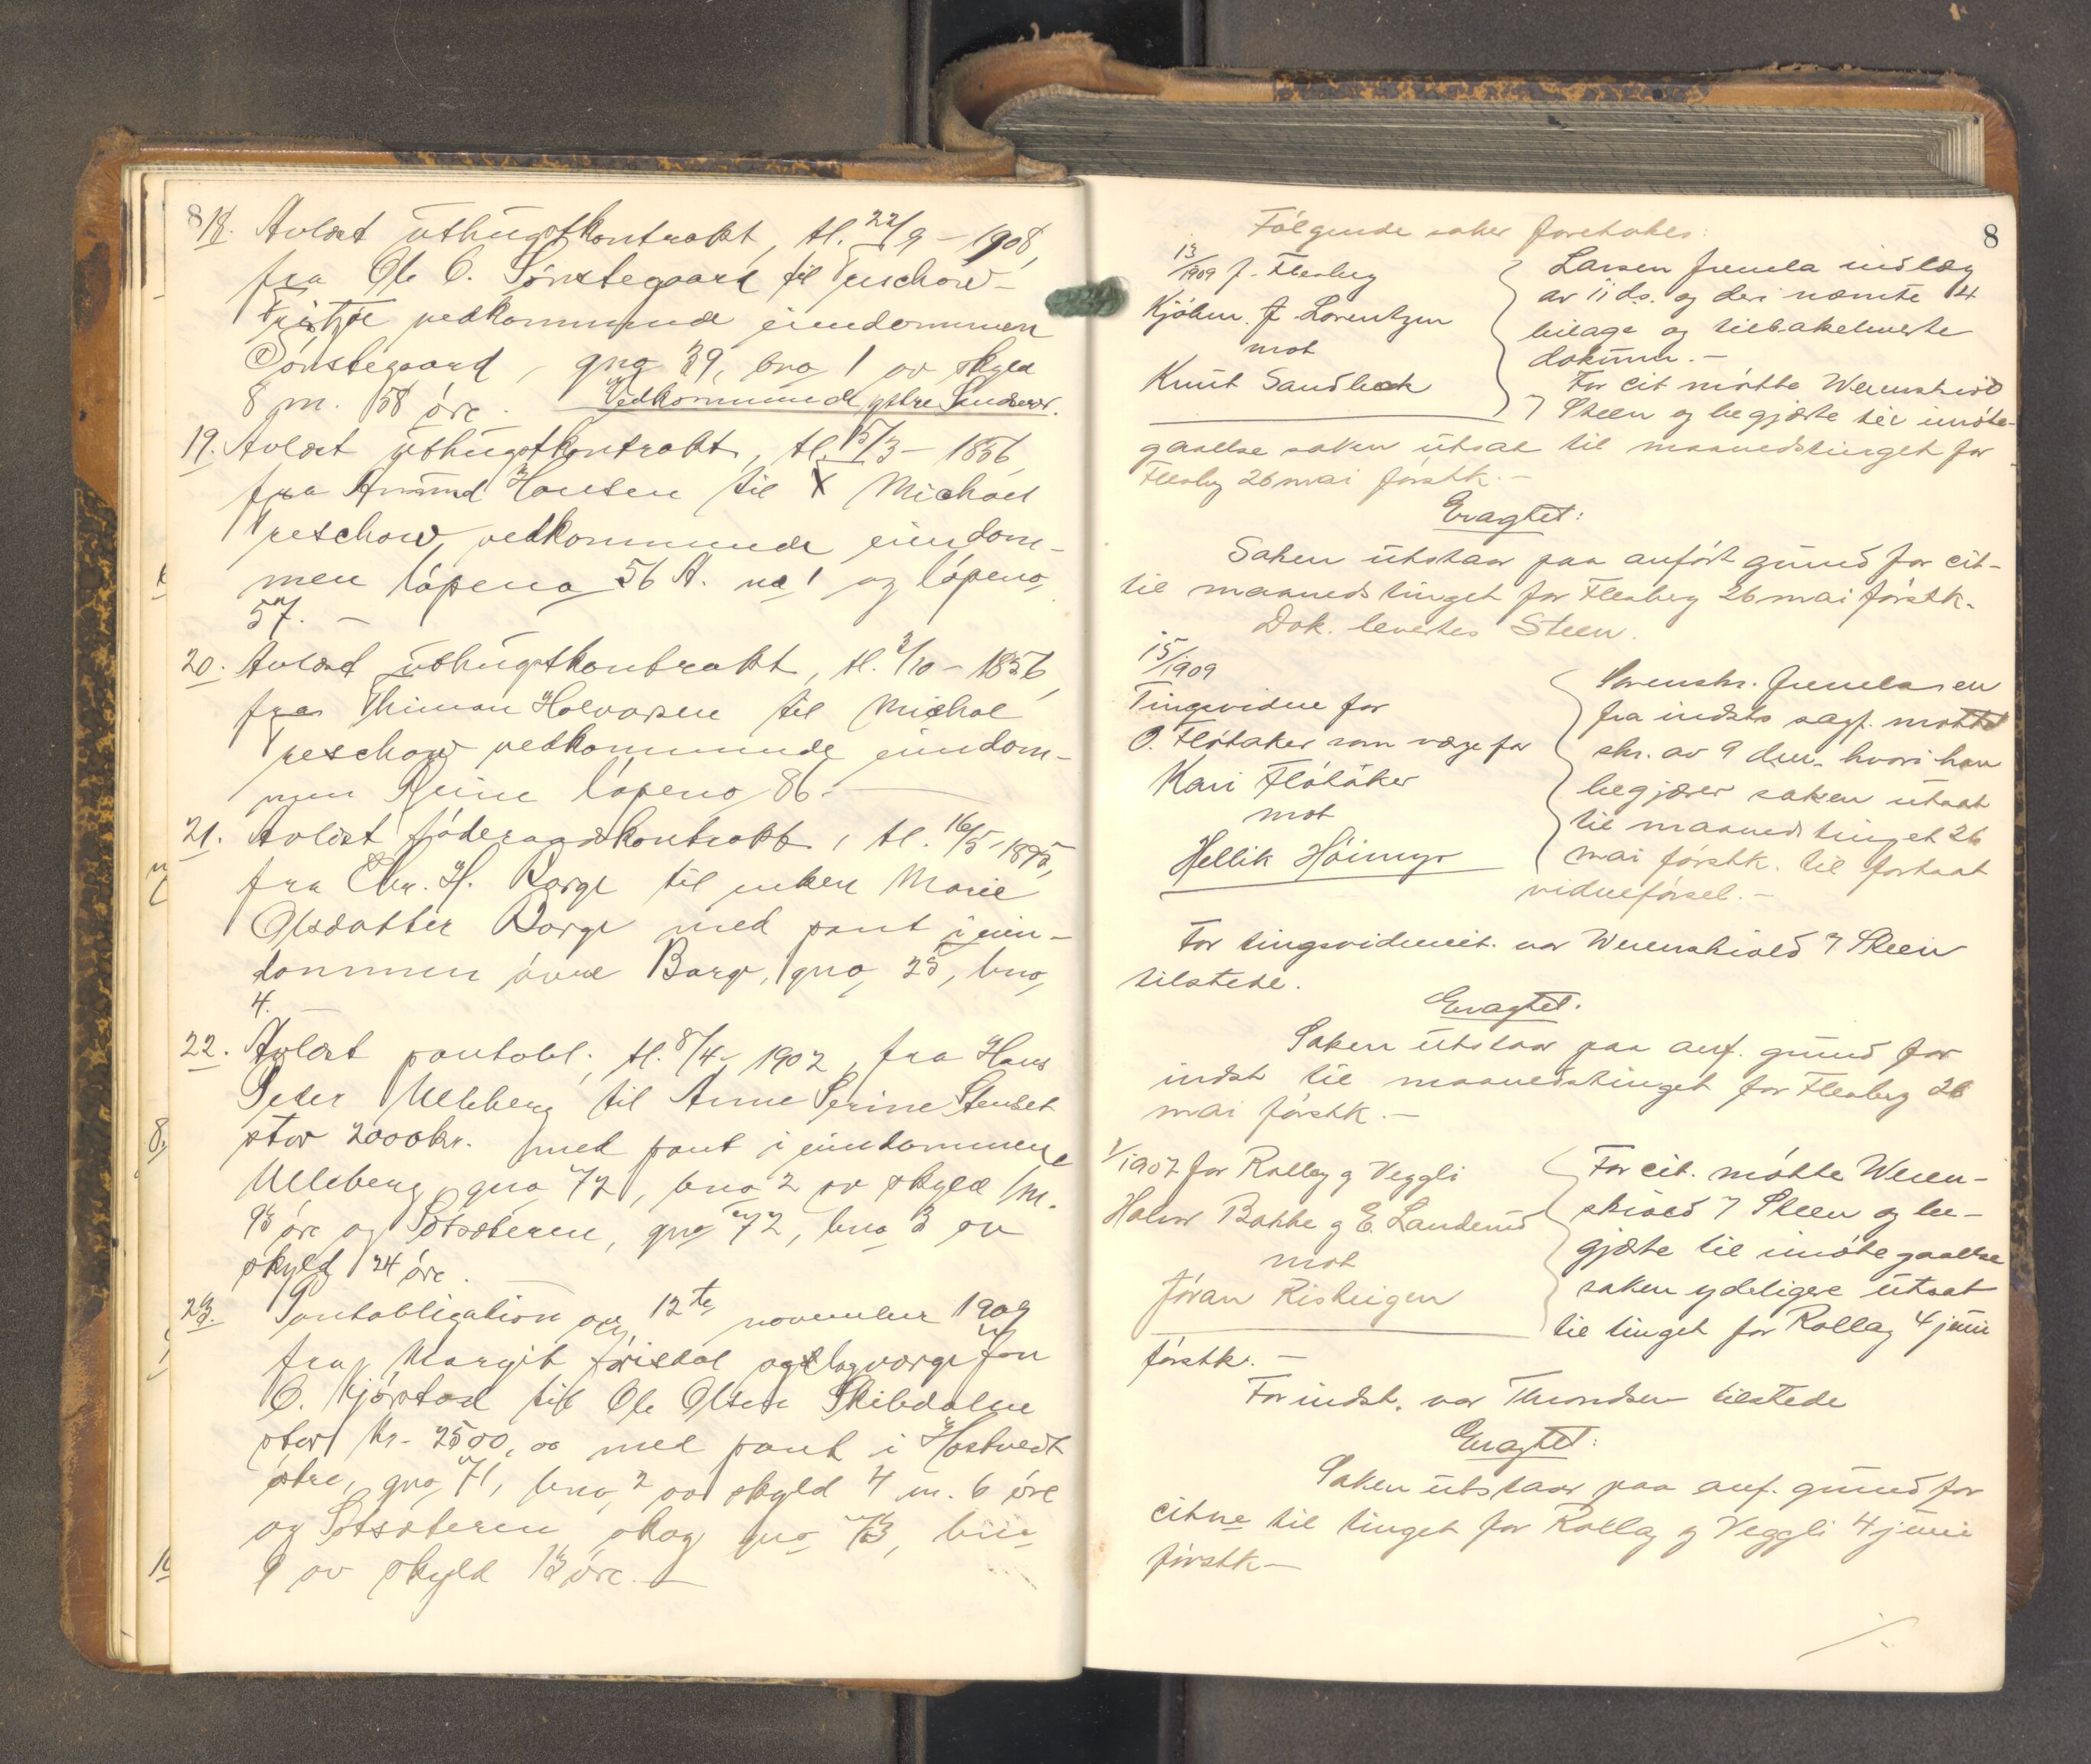 8
18. Avlæst uthugstkontrakt, tl. 22/9 - 1908,
fra Ole O. Sønstegaard til Treschow-
Fritzøe vedkommende eiendommen
Sønstegaard, gno 39, bno 1 av skyld
8 m. 58 øre. Vedkommende ystre Sandsvær.
19. Avlæst uthugstkontrakt, tl. 15/3 - 1856
fra Amund Hansen til Michael
Treschow, vedkommende eiendom-
men løpeno 56 A. no 1 og løpeno
57. -
20. Avlæst uthugstkontrakt, tl. 3/10 - 1856,
fra Thimon Halvorsen til Michal
Treschow vedkommende eiendom-
men løpeno 86. -
21. Avlæst føderaadskontrakt, tl. 16/5 - 1895,
fra Chr. H. Borge til enken Marie
Olsdatter Borge med pant i eien-
dommen øvre Borge, gno 25, bno
4.
22. Avlæst pantobl., tl. 8/4 - 1902, fra Hans
Peder Ulleberg til Anne Serine Stenset
stor 2000 kr. med pant i eiendommene
Ulleberg, gno 72, bno 2 av skyld 1 m.
93 øre og Sotsæteren, gno 72, bno 3 av
skyld 24 øre.
23. Pantobligation av 12te november 1909
fra Margit og lagværge Jon
O. Kjørstad til Ole Olsen Skibdalne
stor kr. 2500,00 med pant i Hostvedt
østre, gno 71, bno 2 av skyld 4 m. 6 øre
og Sotsæteren skog gno 73, bno
9 av skyld 13 øre. -
8
Følgende saker foretokes:
13/1909 f. Flesberg
Kjøbm. J. Lorentzen
mot
Knut Sandbæk
Larsen fremla indlæg
av 11 ds. og deri nævnte 4
bilage og tilbakeleverte
dokum. -
For cit møtte Werenskiold
& Steen og begjærte til imøte-
gaaelse saken utsat til maanedstinget for
Flesberg 26 mai førstk. -
Eragtet:
Saken utstaar paa anført grund for cit-
til maanedstinget for Flesberg 26 mai førstk.
Dok. levertes Steen.
15/1909
Tingsvidne for
O. Fløtaker som værge for
Kari Fløtaker
mot
Hellik Høimyr
Sorenskr. fremla en
fra indsts sagf. mottat
skr. av 9 den. hvori han
begjærer saken utsat
til maanedstinget 26
mai førstk. til fortsat
vidneførsel. -
For tingsvidnecit. var Werenskiold & Steen
tilstede.
Eragtet.
Saken utstaar paa anf. grund for
indst til maanedstinget for Flesberg 26
mai førstk. -
1/1907 for Rollag og Veggli
Halvor Bakke og E. Landerud
mot
Jøran Risteigen
For cit. møtte Weren-
skiold & Steen og be-
gjærte til imøtegaaelse
saken ydeligere utsat
til tinget for Rollag 4 juni
førstk. -
For indst. var Throndsen tilstede
Eragtet:
Saken utstaar paa anf. grund for
citne til tinget for Rollag og Veggli 4 juni
førstk -